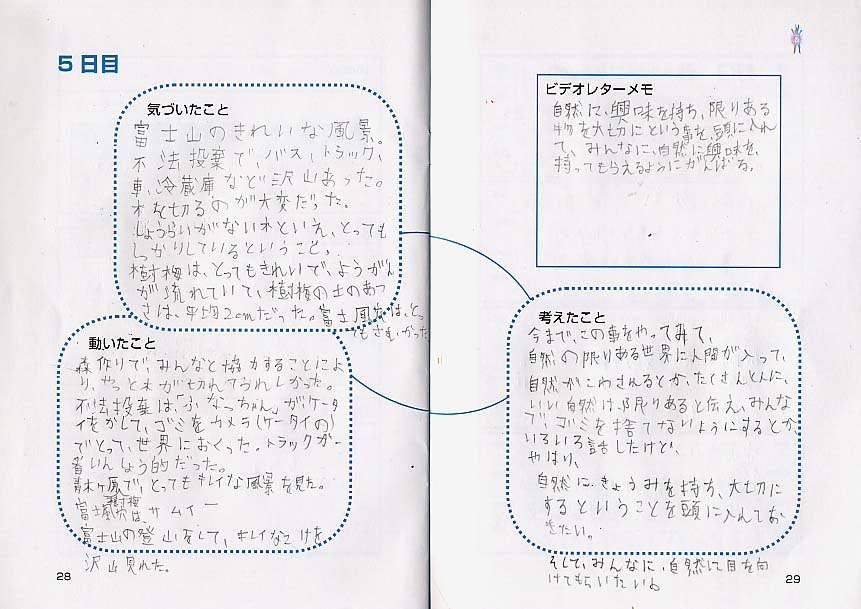 5日目
気づいたこと
富士山のきれいな風景。
不法投棄で、バス、トラック、
車、冷蔵庫など沢山あった。
木を切るのが大変だった。
しょうらいがない木といえ、とっても
しっかりしているということ。
樹海は、とってもきれいで、ようがん
が流れていて、樹海の土のあつ
さは、平均2cmだった。富士風穴は、とっ
てもさむかった。
動いたこと
森作りで、みんなと協力することによ
り、やっと木が切れてうれしかった。
不法投棄は、「ふなっちゃん」が、ケータ
イをかして、ゴミをカメラ(ケータイの)
でとって、世界におくった。トラックが一
番いんしょう的だった。
青木ヶ原樹海で、とってもキレイな風景を見た。
富士風穴はサムイー
富士山の登山をして、キレイなこけを
沢山見れた。
28
ビデオレターメモ
自然に、興味を持ち、限りある
物を大切にという事を、頭に入れ
て、みんなに、自然に興味を、
持ってもらえるようにがんばる。
考えたこと
今まで、この事をやってみて、
自然の限りある世界に人間が入って、
自然がこわされるとか、たくさんの人に、
いい自然は、限りあると伝え、みんな
で、ゴミを捨てないようにするとか、
いろいろ話したけど、
やはり、
自然に、きょうみを持ち、大切に
するということを頭に入れてお
きたい。
そして、みんなに、自然に目を向
けてもらいたい。
29